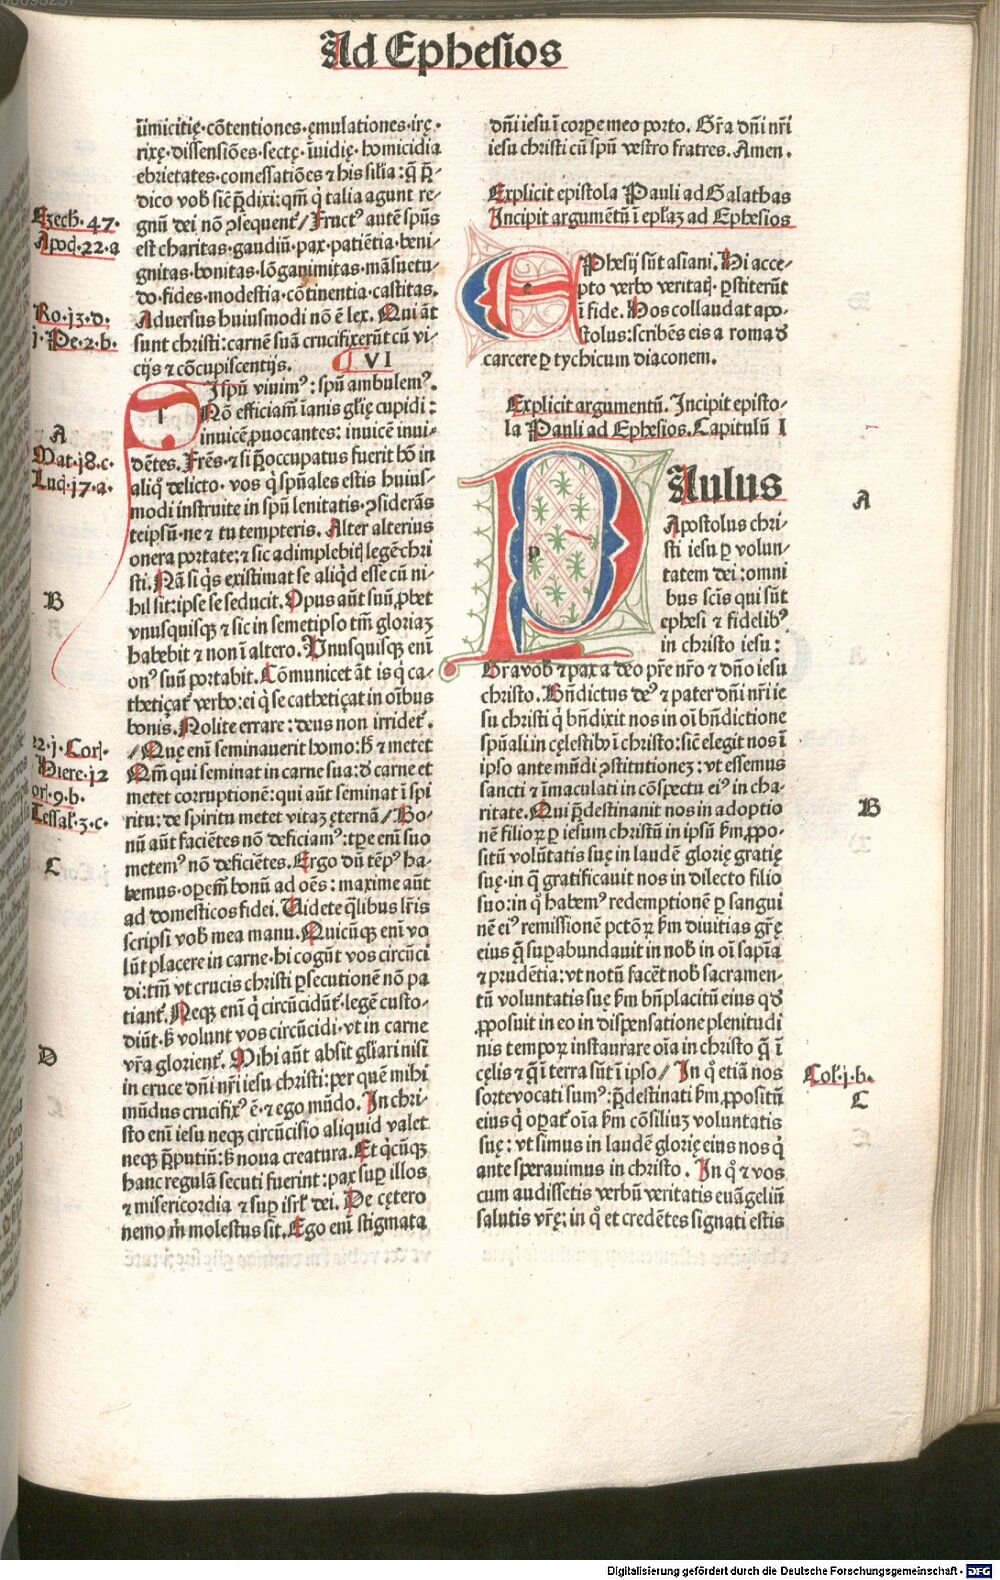 Ad Ephesios
īimicitię·cōtentiones·ęmulationes·irę·
rixę·dissensiōes·sectę·īuidię·homicidia
ebrietates·comessatiōes ⁊ his silia: q̄ p̄-
dico vob sic̄ p̄dixi: qm̄ q̇ talia agunt re-
gnū dei nō ↄsequent̉/ Fruct⁹ autē spūs
est charitas·gaudiū·pax·patiētia·beni-
gnitas·bonitas·lōganimitas·māsuetu-
do·fides·modestia·cōtinentia·castitas.
Aduersus huiusmodi nō ē lex. Qui āt
sunt christi: carnē suā crucifixerūt cū vi-
cijs ⁊ cōcupiscentijs.
VI
I spū viuim⁹: spū ambulem⁹.
Nō efficiam̄ īanis glię cupidi:
inuicē ꝓuocantes: inuicē inui-
dētes. Frēs·⁊ si p̄occupatus fuerit hō in
aliq̊ delicto·vos q̇ spūales estis huius-
modi instruite in spū lenitatis·ↄsiderās
teipsū·ne ⁊ tu tempteris. Alter alterius
onera portate: ⁊ sic adimplebitꝭ legē chri
sti. Nā si q̇s existimat se aliq̇d esse cū ni-
hil sit: ipse se seducit. Opus aūt suū ꝓbet
vnusquisqꝫ ⁊ sic in semetipso tm̄ gloriaꝫ
habebit ⁊ non ī altero. Vnusquisqꝫ enī
on⁹ suū portabit. Cōmunicet āt is q̇ ca-
thetiçat̉ verbo: ei q̇ se cathetiçat in oībus
bonis. Nolite errare: deus non irridet̉.
/Quę enī seminauerit homo: h̄ ⁊ metet
Qm̄ qui seminat in carne sua: d̄ carne et
metet corruptionē: qui aūt seminat ī spi
ritu: de spiritu metet vitaꝫ ęternā/ Bo-
nū aūt faciētes nō deficiam⁹: tꝑe enī suo
metem⁹ nō deficiētes. Ergo dū tēp⁹ ha-
bemus·oꝑem̄ bonū ad oēs: maxime aūt
ad domesticos fidei. Uidete q̄libus lr̄is
scripsi vob mea manu. Quicūqꝫ enī vo
lūt placere in carne·hi cogūt vos circūci
di: tm̄ vt crucis christi ꝑsecutionē nō pa
tiant̉. Neqꝫ enī q̇ circūcidūt̉·legē custo-
diūt·s̄ volunt vos circūcidi·vt in carne
vr̄a glorient̉. Mihi aūt absit gl̄iari nisi
in cruce dn̄i nr̄i iesu christi: per quē mihi
mūdus crucifix⁹ ē·⁊ ego mūdo. In chri-
sto enī iesu neqꝫ circūcisio aliquid valet
neqꝫ p̄putiū: s̄ noua creatura. Et q̇cūqꝫ
hanc regulā secuti fuerint: pax suꝑ illos
⁊ misericordia ⁊ suꝑ isrl̄ dei. De cętero
nemo m̄ molestus sit. Ego enī stigmata
Ezech·47·
Apoc·22·a
Ro·13·d·
j·Pe·2·b·
A
Mat·18·c·
Luc·17·a·
B
22·j·Cor·
Hiere·12
or·9·b·
Tessal·3·c·
C
D
dn̄i iesu ī corꝑe meo porto. Gr̄a dn̄i nr̄i
iesu christi cū spū vestro fratres. Amen.
Explicit epistola Pauli ad Galathas
Incipit argumētū ī epl̄aꝫ ad Ephesios
Ephesij sūt asiani. Hi acce-
pto verbo veritatꝭ ꝑstiterūt
ī fide. Hos collaudat apo-
stolus: scribēs eis a roma d̄
carcere ꝑ tychicum diaconem.
Explicit argumentū. Incipit episto-
la Pauli ad Ephesios. Capitulū I
PAulus
Apostolus chri-
sti iesu ꝑ volun-
tatem dei: omni
bus sctīs qui sūt
ephesi ⁊ fidelib⁹
in christo iesu:
Gr̄a vob ⁊ pax a deo pr̄e nr̄o ⁊ dn̄o iesu
christo. Bn̄dictus de⁹ ⁊ pater dn̄i nr̄i ie
su christi q̇ bn̄dixit nos in oī bn̄dictione
spūali in cęlestibꝰ ī christo: sic̄ elegit nos ī
ipso ante mūdi ↄstitutioneꝫ: vt essemus
sancti ⁊ īmaculati in cōspectu ei⁹ in cha-
ritate. Qui p̄destinauit nos in adoptio
nē filioꝝ ꝑ iesum christū in ipsū s̄m ꝓpo-
sitū volūtatis suę in laudē glorię gratię
suę·in q̄ gratificauit nos in dilecto filio
suo: in q̊ habem⁹ redemptionē ꝑ sangui
nē ei⁹ remissionē pctōꝝ s̄m diuitias gr̄ę
eius q̄ suꝑabundauit in nob in oī sapīa
⁊ prudētia: vt notū facēt nob sacramen-
tū voluntatis suę s̄m bn̄placitū eius qd̄
ꝓposuit in eo in dispensatione plenitudi
nis tempoꝝ instaurare oīa in christo q̄ ī
cęlis ⁊ q̄ ī terra sūt ī ipso/ In q̊ etiā nos
sorte vocati sum⁹: p̄destinati s̄m ꝓpositū
eius q̇ oꝑat̉ oīa s̄m cōsiliuꝫ voluntatis
suę: vt simus in laudē glorię eius nos q̇
ante sperauimus in christo. In q̊ ⁊ vos
cum audissetis verbū veritatis euāgeliū
salutis vr̄ę: in q̊ et credētes signati estis
A
B
Col·j·b·
C
Digitalisierung gefördert durch die Deutsche Forschungsgemeinschaft - DFG